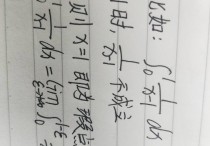 比如: ∫₀ 1/(x-1) dx
时, 1/(x-1) 不成立
则 x=1 即为瑕点
∫₀ 1/(x-1) dx = lim ∫₀^(1-ε)